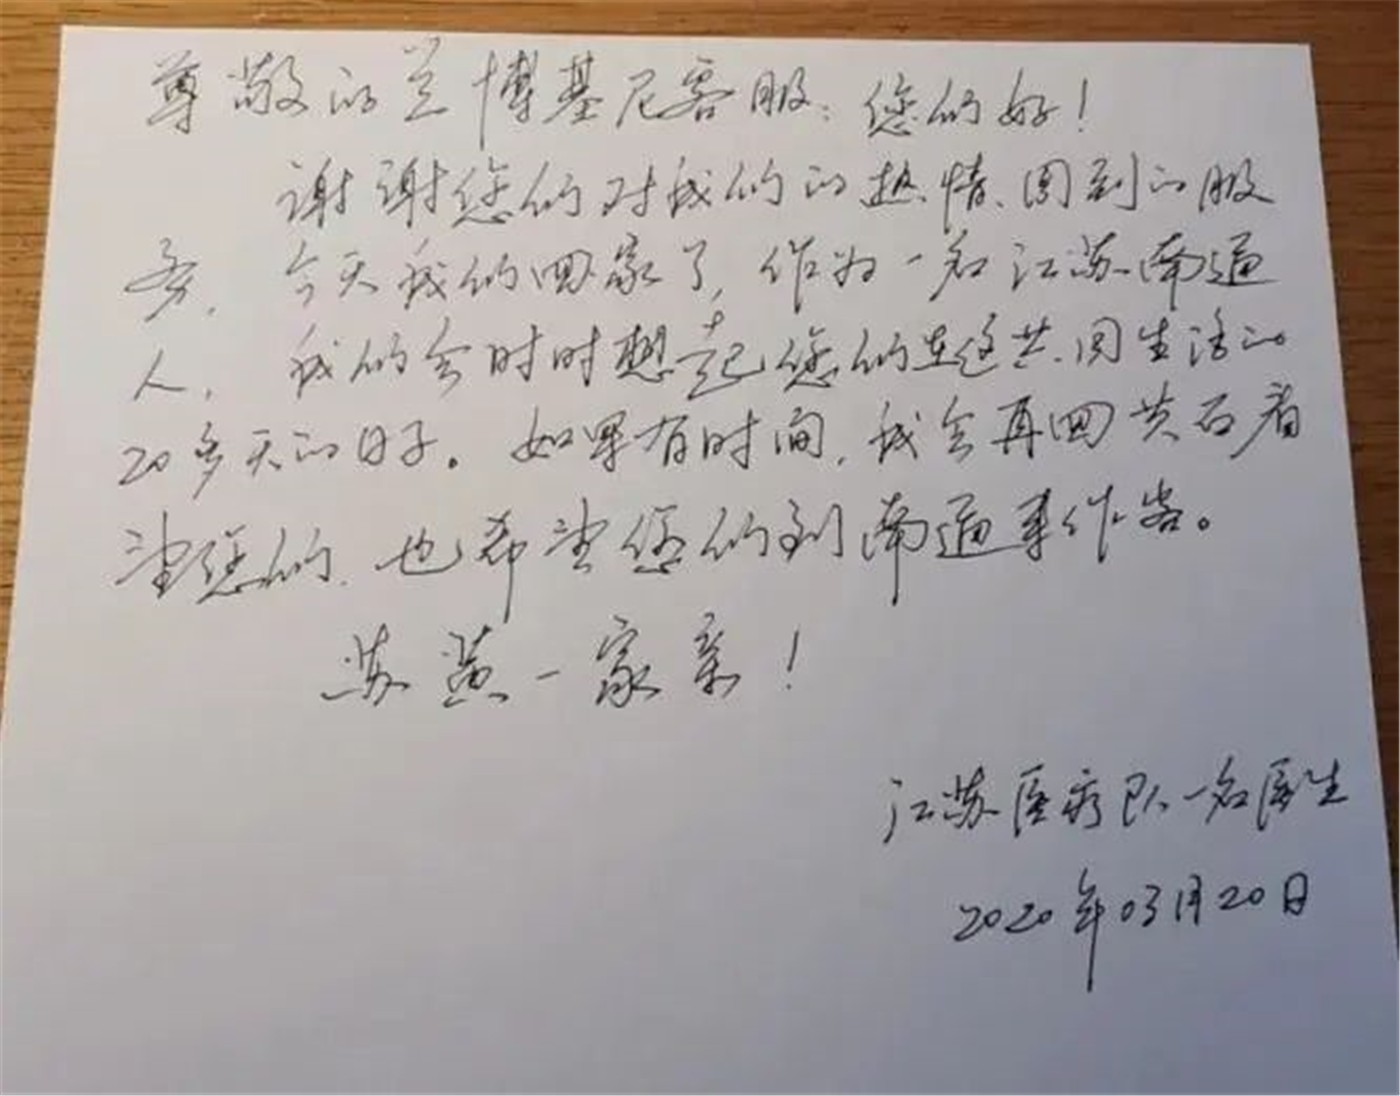 尊敬的兰博基尼客服:您们好!
谢谢您们对我们的热情、周到的服
务,今天我们回家了,作为一名江苏南通
人,我们会时时想起您们在这共同生活的
20多天的日子。如果有时间,我会再回黄石看
望您们,也希望您们到南通来作客。
苏黄一家亲!
江苏医疗队一名医生
2020年03月20日